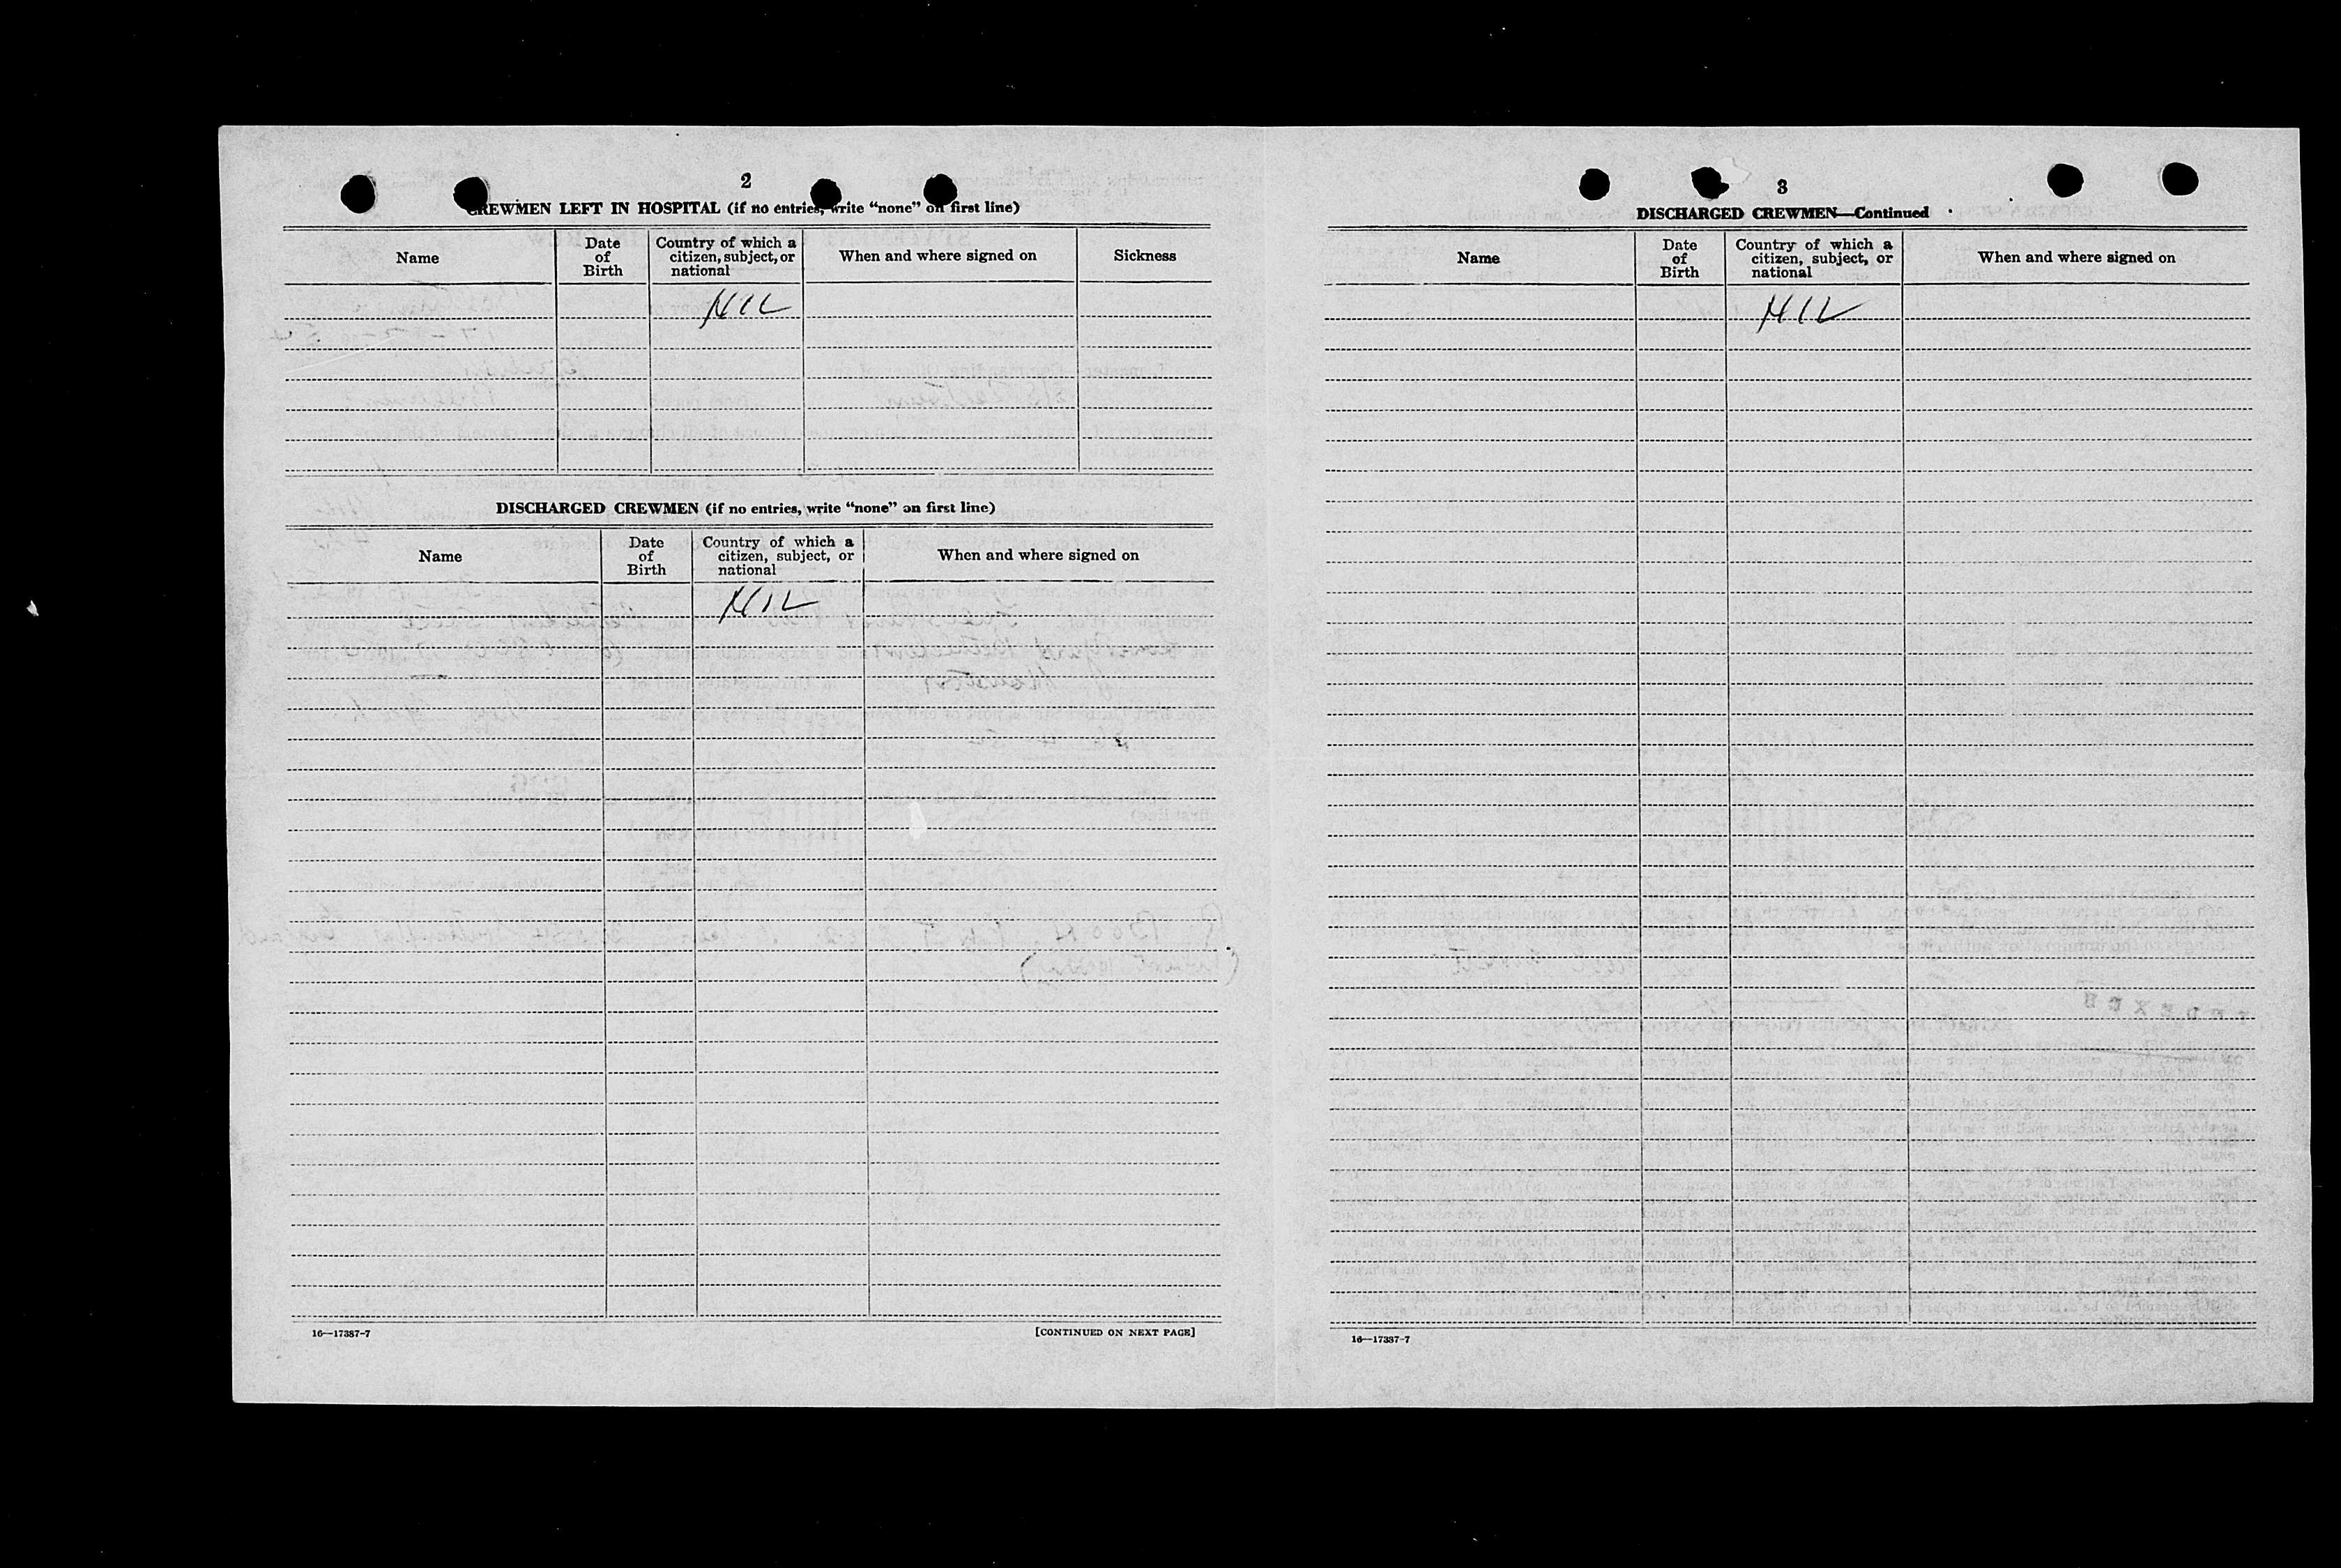 2
CREWMEN LEFT IN HOSPITAL (if no entries, write “none” on first line)
Name
Date of Birth
Country of which a citizen, subject, or national
When and where signed on
Sickness
NIL
DISCHARGED CREWMEN (if no entries, write “none” on first line)
Name
Date of Birth
Country of which a citizen, subject, or national
When and where signed on
NIL
16—17387-7
[CONTINUED ON NEXT PAGE]
3
DISCHARGED CREWMEN—Continued
Name
Date of Birth
Country of which a citizen, subject, or national
When and where signed on
NIL
16—17387-7